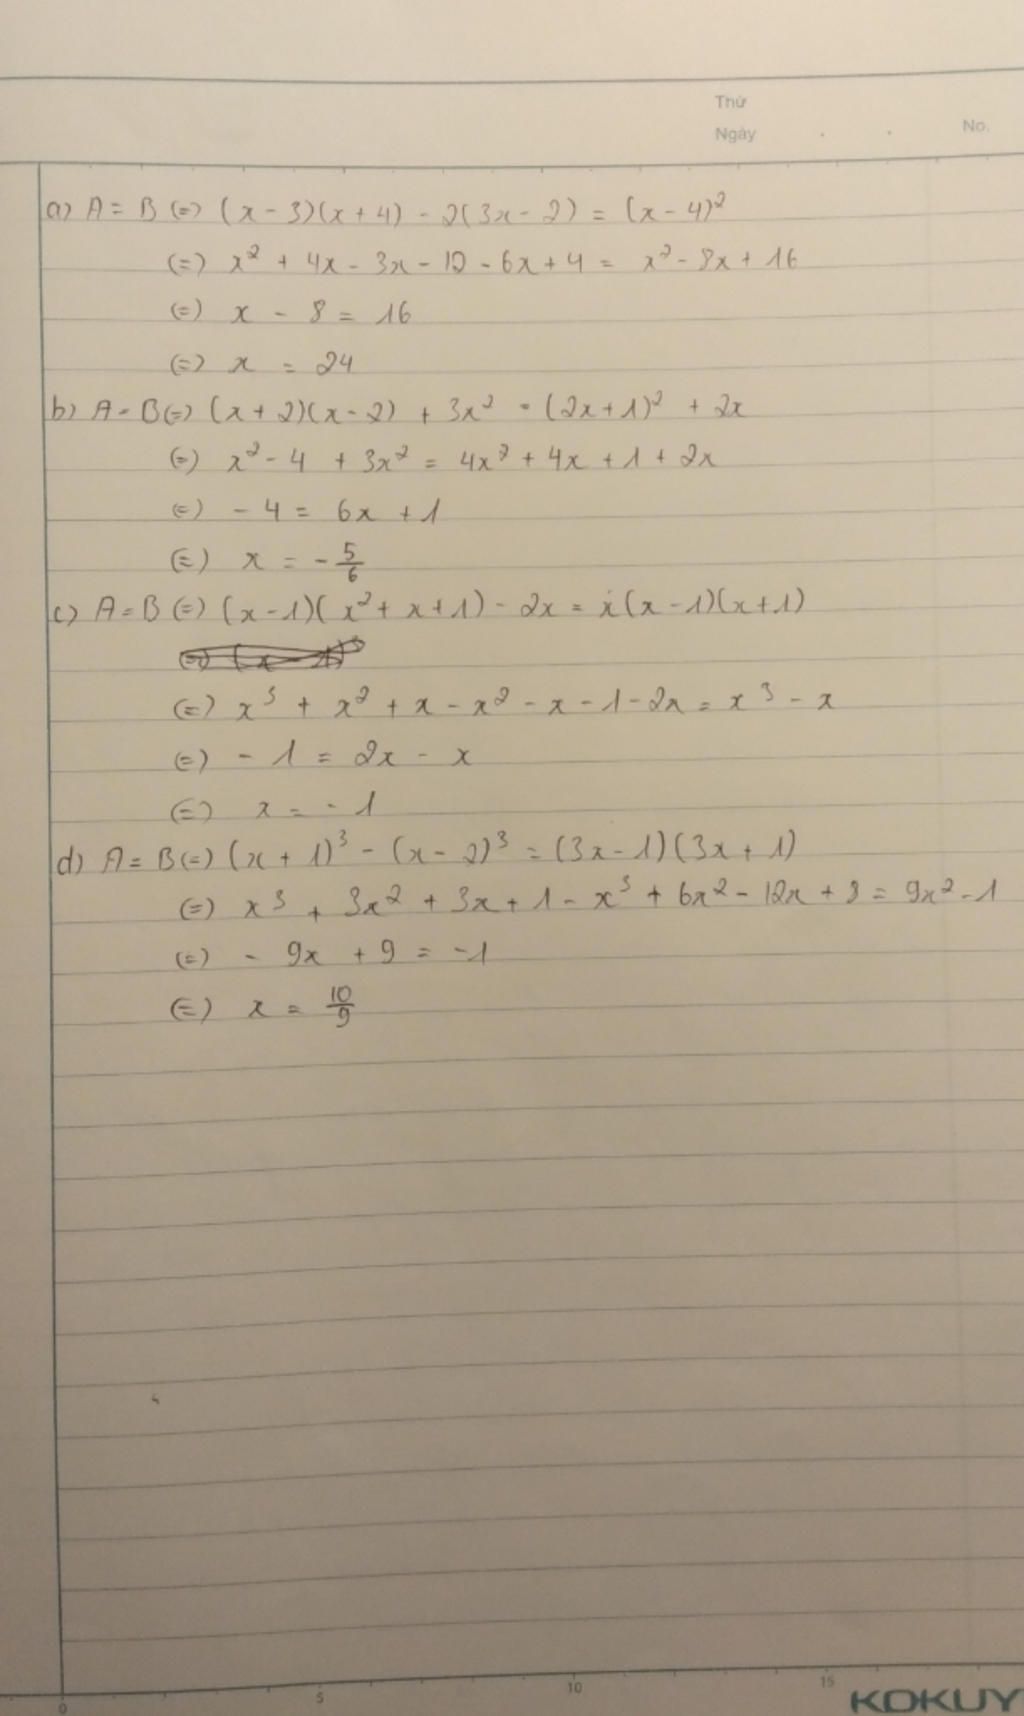 Thứ
Ngày . . No.
a) A = B (=) (x - 3)(x + 4) - 2(3x - 2) = (x - 4)²
(=) x² + 4x - 3x - 12 - 6x + 4 = x² - 8x + 16
(=) x - 8 = 16
(=) x = 24
b) A = B (=) (x + 2)(x - 2) + 3x² = (2x + 1)² + 2x
(=) x² - 4 + 3x² = 4x² + 4x + 1 + 2x
(=) - 4 = 6x + 1
(=) x = - 5/6
c) A = B (=) (x - 1)(x² + x + 1) - 2x = x(x - 1)(x + 1)
(=) x³ + x² + x - x² - x - 1 - 2x = x³ - x
(=) - 1 = 2x - x
(=) x = - 1
d) A = B (=) (x + 1)³ - (x - 2)³ = (3x - 1)(3x + 1)
(=) x³ + 3x² + 3x + 1 - x³ + 6x² - 12x + 8 = 9x² - 1
(=) - 9x + 9 = -1
(=) x = 10/9
0 5 10 15
KOKUY